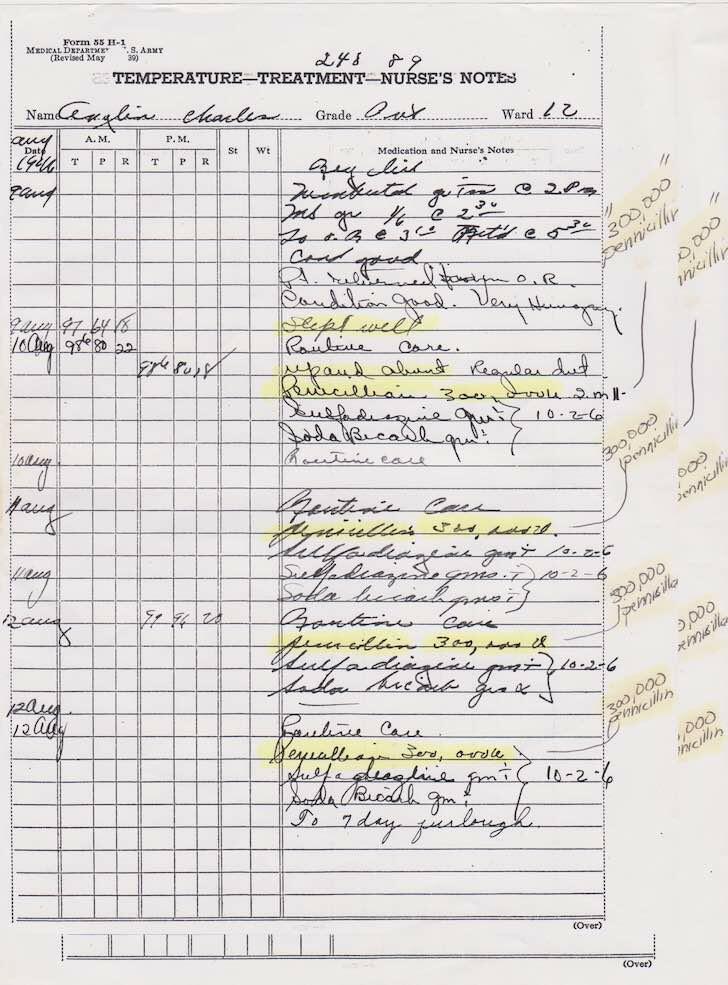 Form 55 H-1
MEDICAL DEPARTME , S. ARMY
(Revised May 39)
248 89
TEMPERATURE—TREATMENT—NURSE'S NOTES
Name Anglin Charles Grade Pvt Ward 12
Aug
Date A.M. P.M. St Wt Medication and Nurse's Notes
1946 T P R T P R
9 aug Nembutal gr @ 2 pm
MS gr 1/6 @ 2 30
To O.R @ 3 Ret'd @ 5 30
Cond good
Pt. returned from O.R.
Condition Good. Very Hungry.
9 aug 97 64 18 Slept well
10 Aug 98 6 80 22 Routine Care.
80 18 up and about Regular diet
Penicillian 300,000u
Sulfadiazine gm ī } 10-2-6
Soda Bicarb gm ī
10 aug Routine care
11 aug Routine Care
penicillin 300,000 u.
Sulfadiazine gm ī 10-2-6
11 aug Sulfadiazine gms. ī } 10-2-6
Soda bicarb gms ī
12 aug 97 96 20 Routine Care
penicillin 300,000 u
Sulfadiazine gm ī } 10-2-6
Soda bicarb
12 aug
12 Aug Routine Care.
Penicillian 300,000u
Sulfadiazine gm ī } 10-2-6
Soda Bicarb gm ī
To 7 day furlough.
(Over)
(Over)
"
300,000
pennicillin
"
0,000
nicillin
300,000
pennicillin
000
pennicillin
300,000
pennicillin
0,000
pennicillin
300,000
pennicillin
,000
nicillin